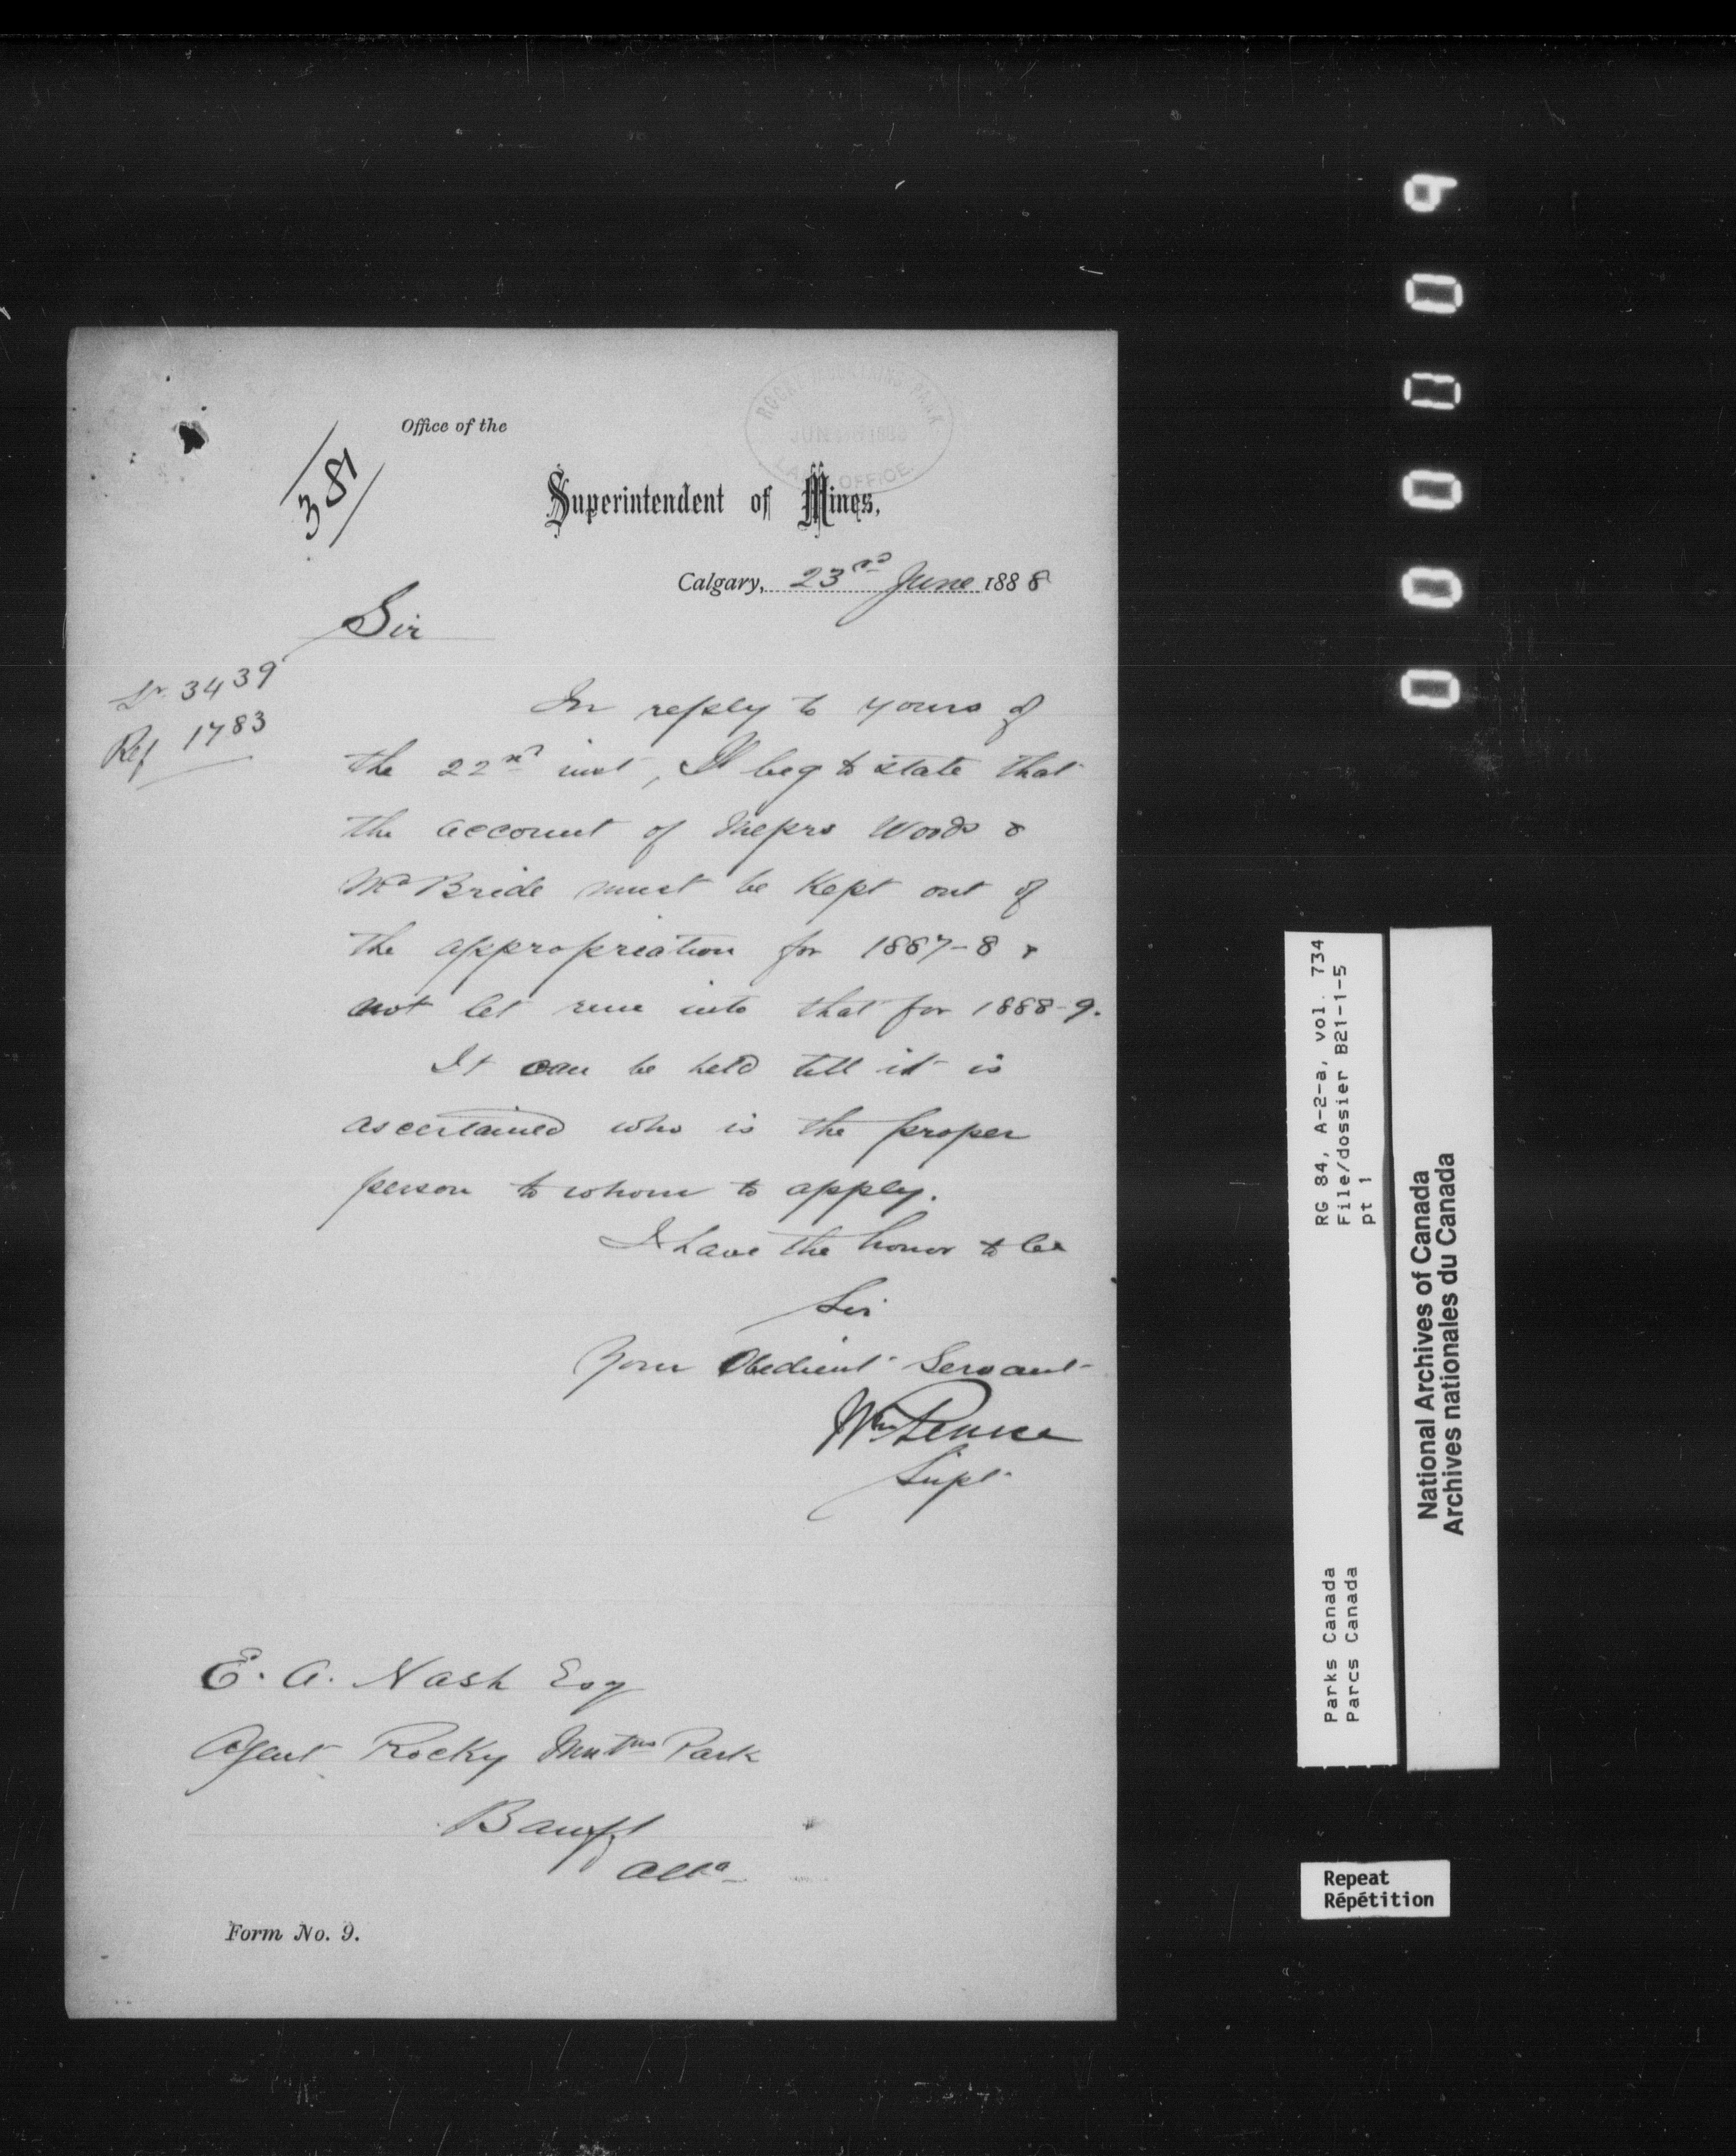 Office of the
381
ROCKY MOUNTAINS PARK
JUN 1888
LAND OFFICE.
Superintendent of Mines,
Calgary, 23rd June 1888
Sir
Lr. 3439
Ref 1783
In reply to yours of
the 22nd inst, I beg to state that
the account of Messrs Woods &
McBride must be Kept out of
the appropriation for 1887-8 &
not let run into that for 1888-9.
It can be held till it is
ascertained who is the proper
person to whom to apply.
I have the honor to be
Sir
Your Obedient Servant
Wm Pearce
Supt
E. A. Nash Esq
Agent Rocky Mntns Park
Banff
Alta
Form No. 9.
000009
RG 84, A-2-a, vol. 734
File/dossier B21-1-5
pt 1
Parks Canada
Parcs Canada
National Archives of Canada
Archives nationales du Canada
Repeat
Répétition